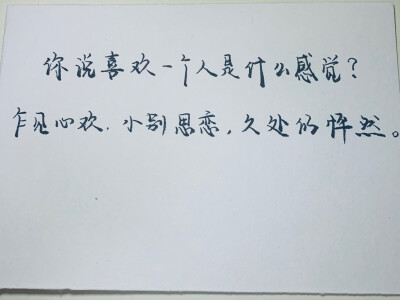 你说喜欢一个人是什么感觉？
乍见心欢，小别思恋，久处仍怦然。